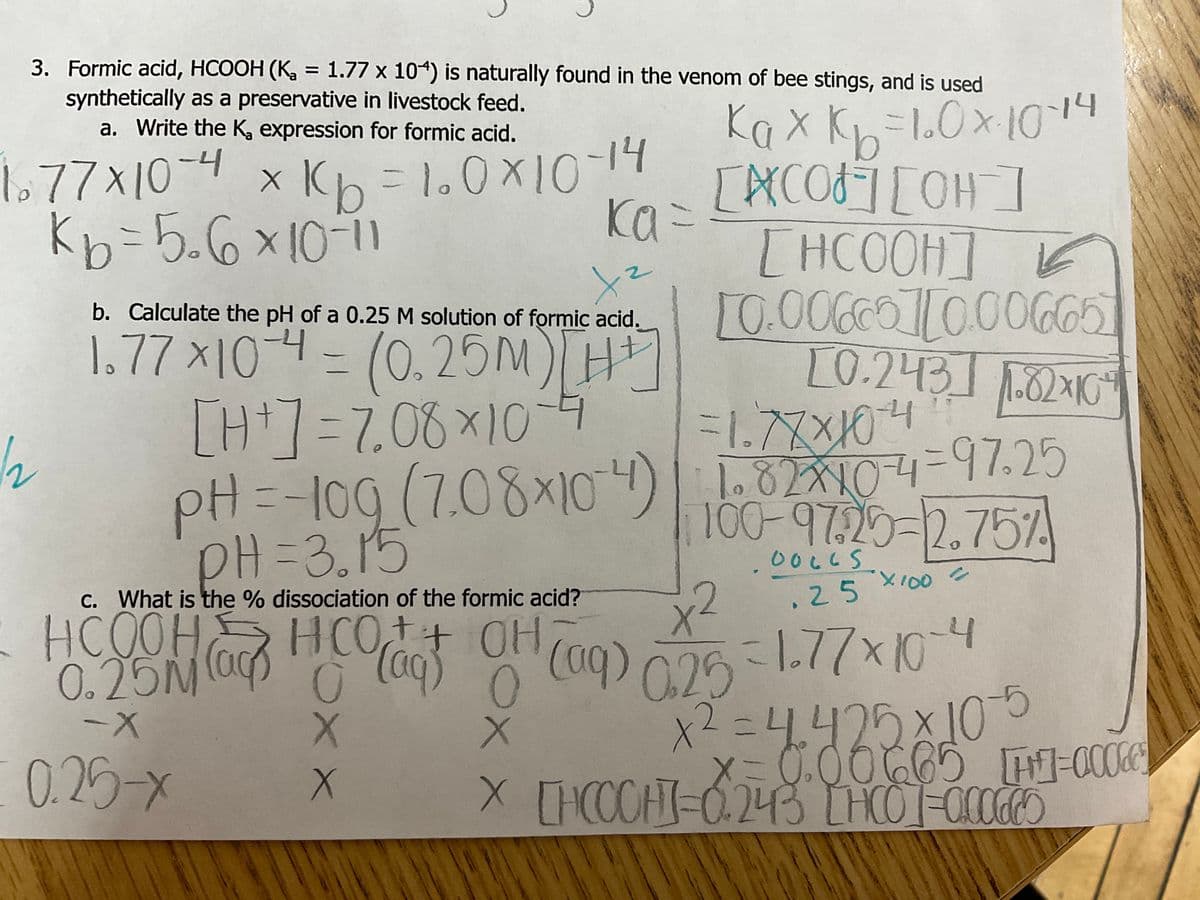 3. Formic acid, HCOOH (Kₐ = 1.77 x 10⁻⁴) is naturally found in the venom of bee stings, and is used
synthetically as a preservative in livestock feed.
a. Write the Kₐ expression for formic acid.
Ka x Kb = 1.0 x 10⁻¹⁴
1.77x10⁻⁴ x Kb = 1.0x10⁻¹⁴
Kb = 5.6 x10⁻¹¹
Ka = [HCO⁻][OH⁻]
[HCOOH]
x²
b. Calculate the pH of a 0.25 M solution of formic acid.
1.77 x10⁻⁴ = (0.25M)[H⁺]
[H⁺] = 7.08 x10⁻⁴
1/2
pH = -log (7.08x10⁻⁴)
pH = 3.15
[0.00665][0.00665]
[0.243] 1.82x10⁻⁴
= 1.77x10⁻⁴
1.82x10⁻⁴ = 97.25
100-97.25 = 2.75%
.00665
.25 x100 =
c. What is the % dissociation of the formic acid?
HCOOH(aq) ⇆ HCO⁺(aq) + OH⁻(aq)
0.25M 0 0
-x x x
0.25-x x x
x²
0.25 = 1.77x10⁻⁴
x² = 4.425x10⁻⁵
x = 0.00665 [H⁺]=0.00665
[HCOOH]=0.243 [HCO]=0.00665